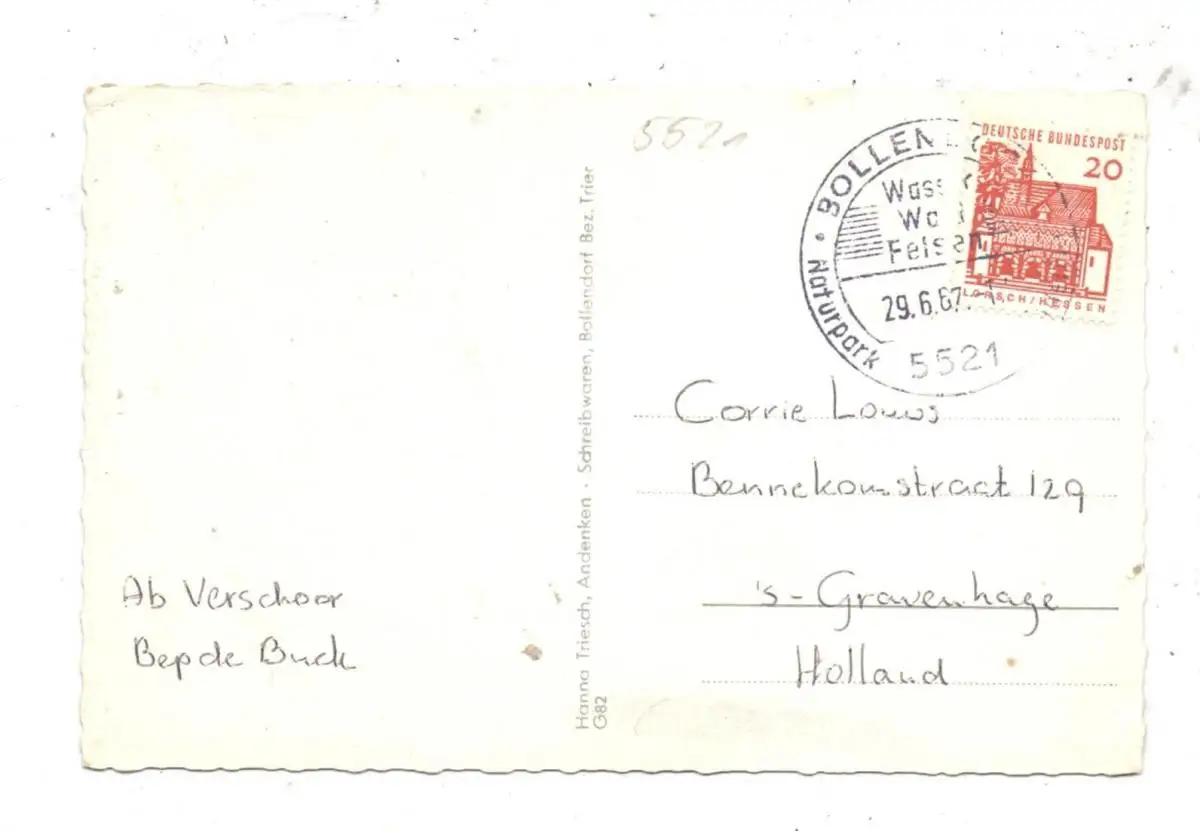 5521
DEUTSCHE BUNDESPOST
20
LORSCH/HESSEN
BOLLEN
Felsen
29.6.67
Naturpark
5521
Hanna Triesch, Andenken · Schreibwaren, Bollendorf Bez. Trier
G82
Corrie Louws
Bennekomstraat 129
's-Gravenhage
Holland
Ab Verschoor
Bep de Buck